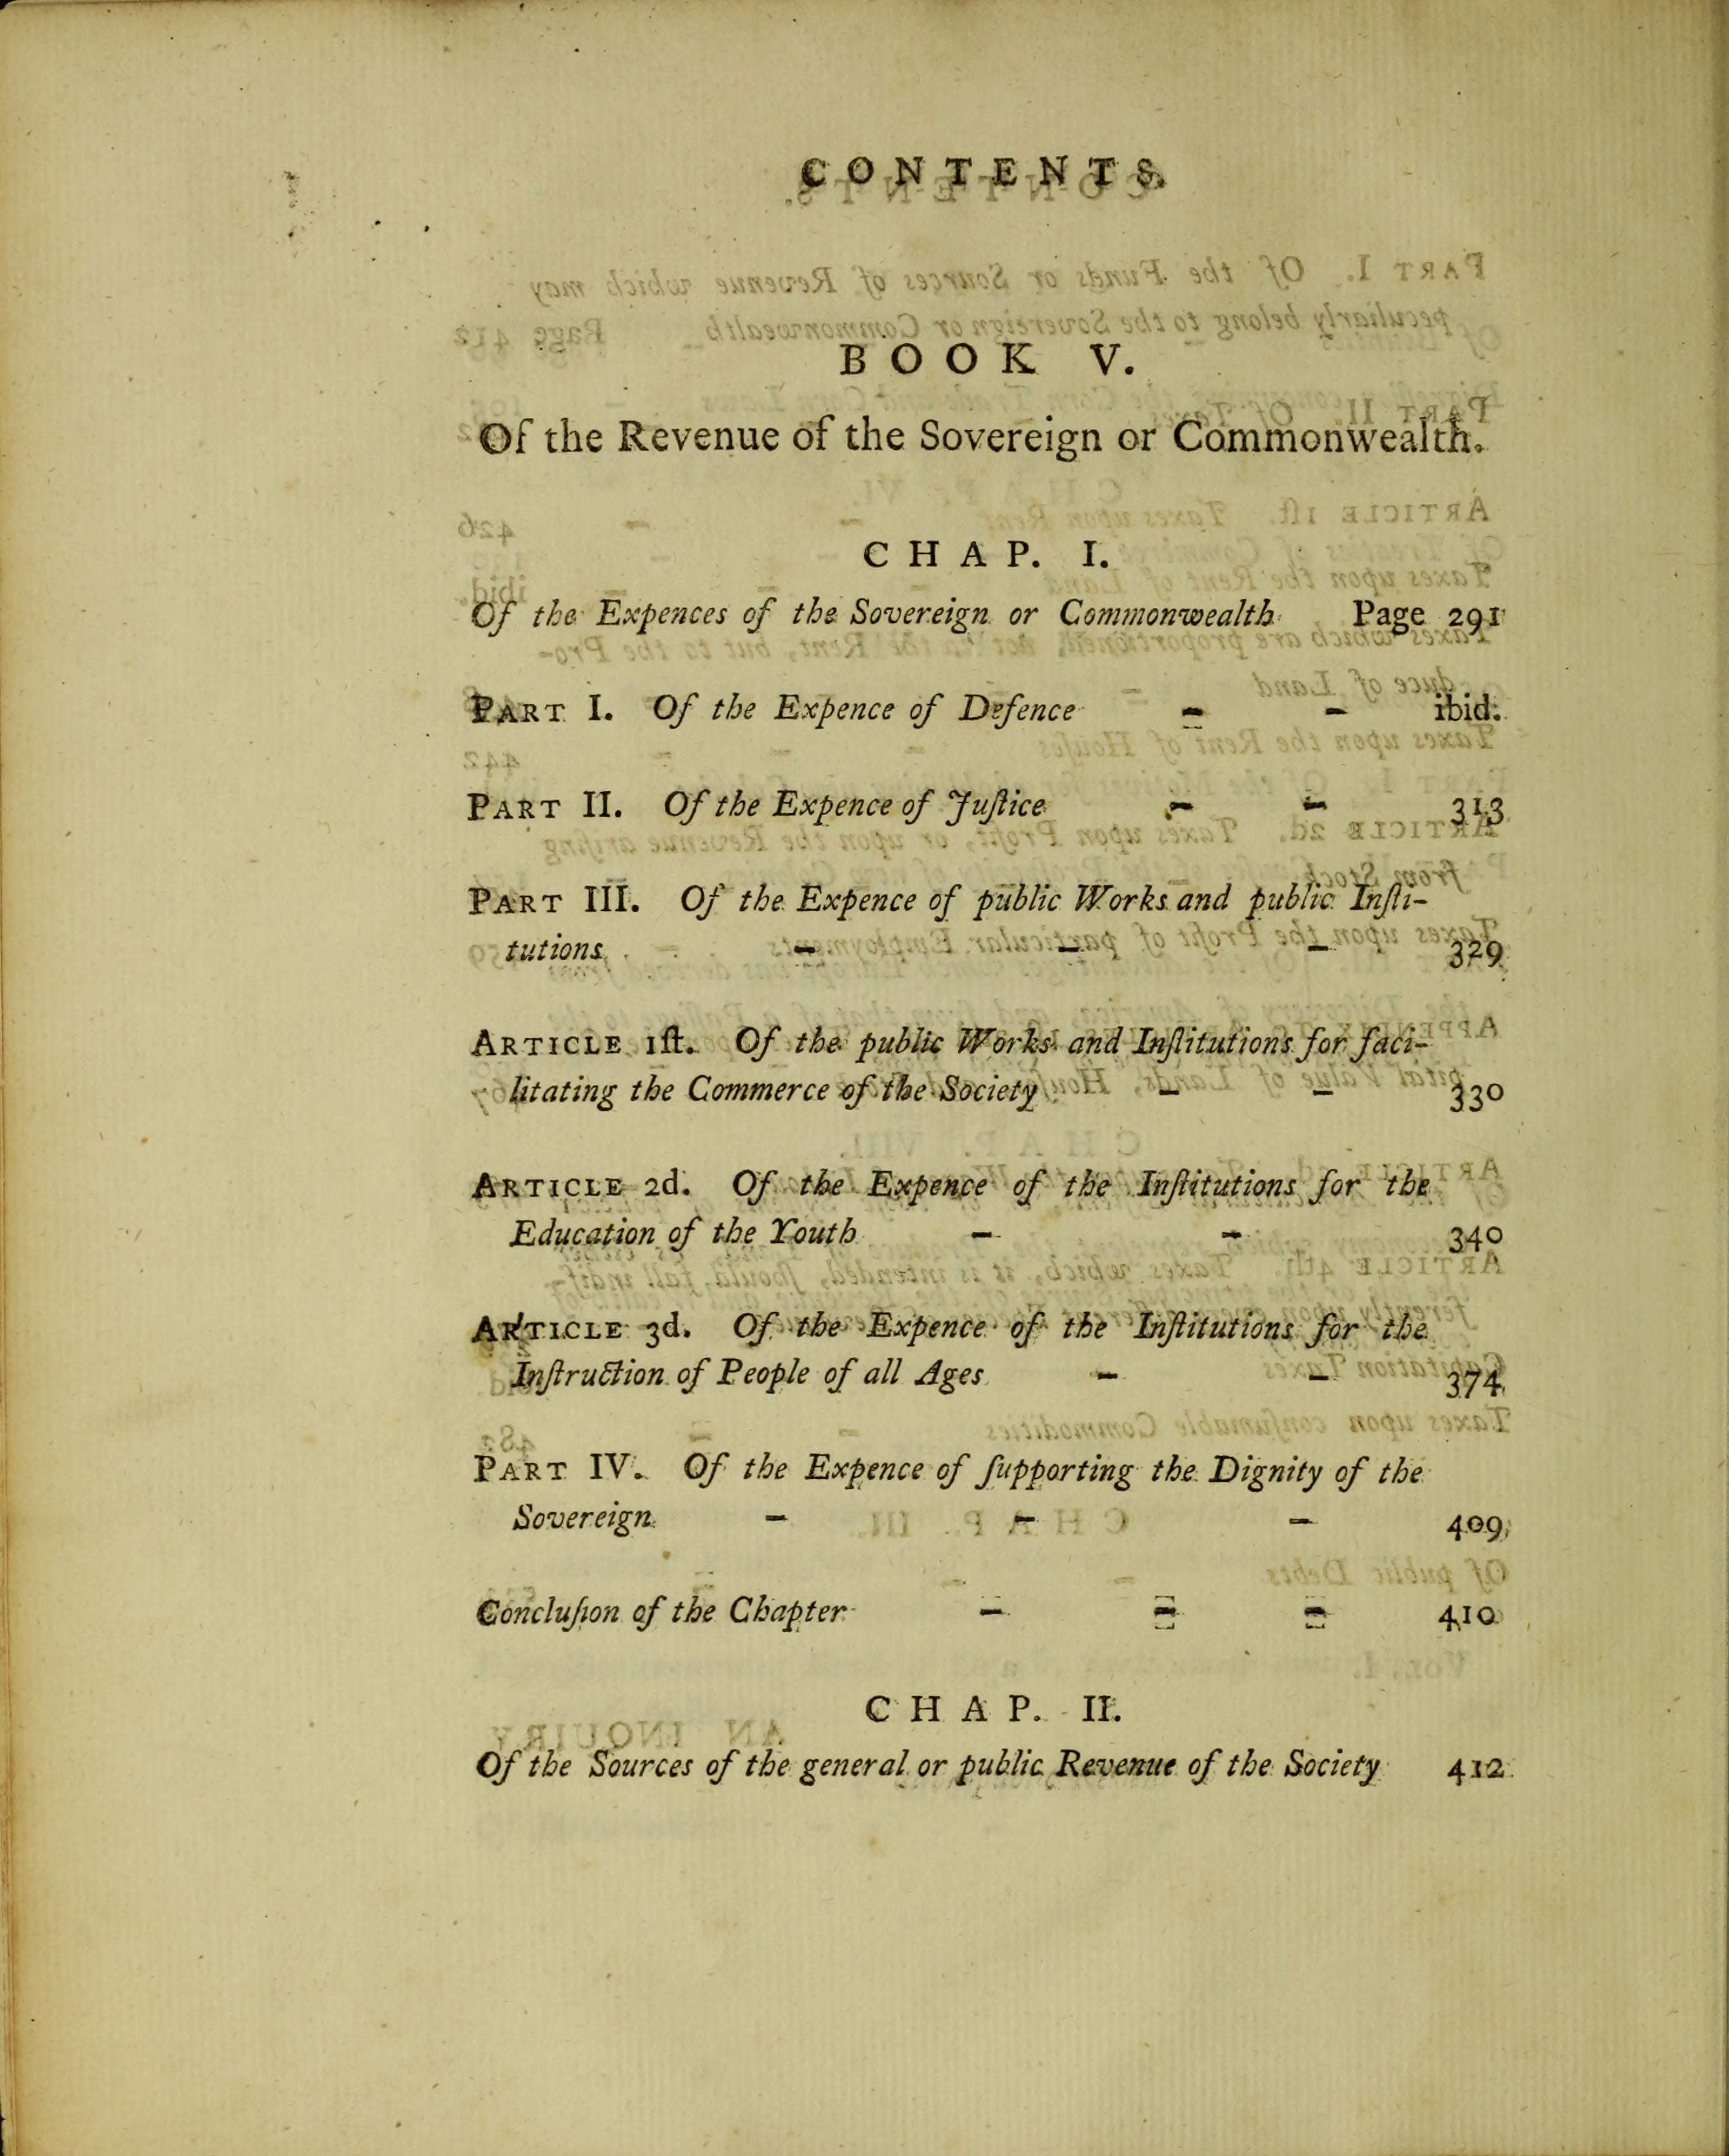 CONTENTS.
BOOK V.
Of the Revenue of the Sovereign or Commonwealth.
CHAP. I.
Of the Expences of the Sovereign or Commonwealth Page 291
PART I. Of the Expence of Defence - - ibid.
PART II. Of the Expence of Juſtice - - 313
PART III. Of the Expence of public Works and public Inſti-
tutions - - - 329
ARTICLE 1ſt. Of the public Works and Inſtitutions for faci-
litating the Commerce of the Society - - 330
ARTICLE 2d. Of the Expence of the Inſtitutions for the
Education of the Youth - - 340
ARTICLE 3d. Of the Expence of the Inſtitutions for the
Inſtruction of People of all Ages - - 374
PART IV. Of the Expence of ſupporting the Dignity of the
Sovereign - - - 409
Concluſion of the Chapter - - - 410
CHAP. II.
Of the Sources of the general or public Revenue of the Society 412